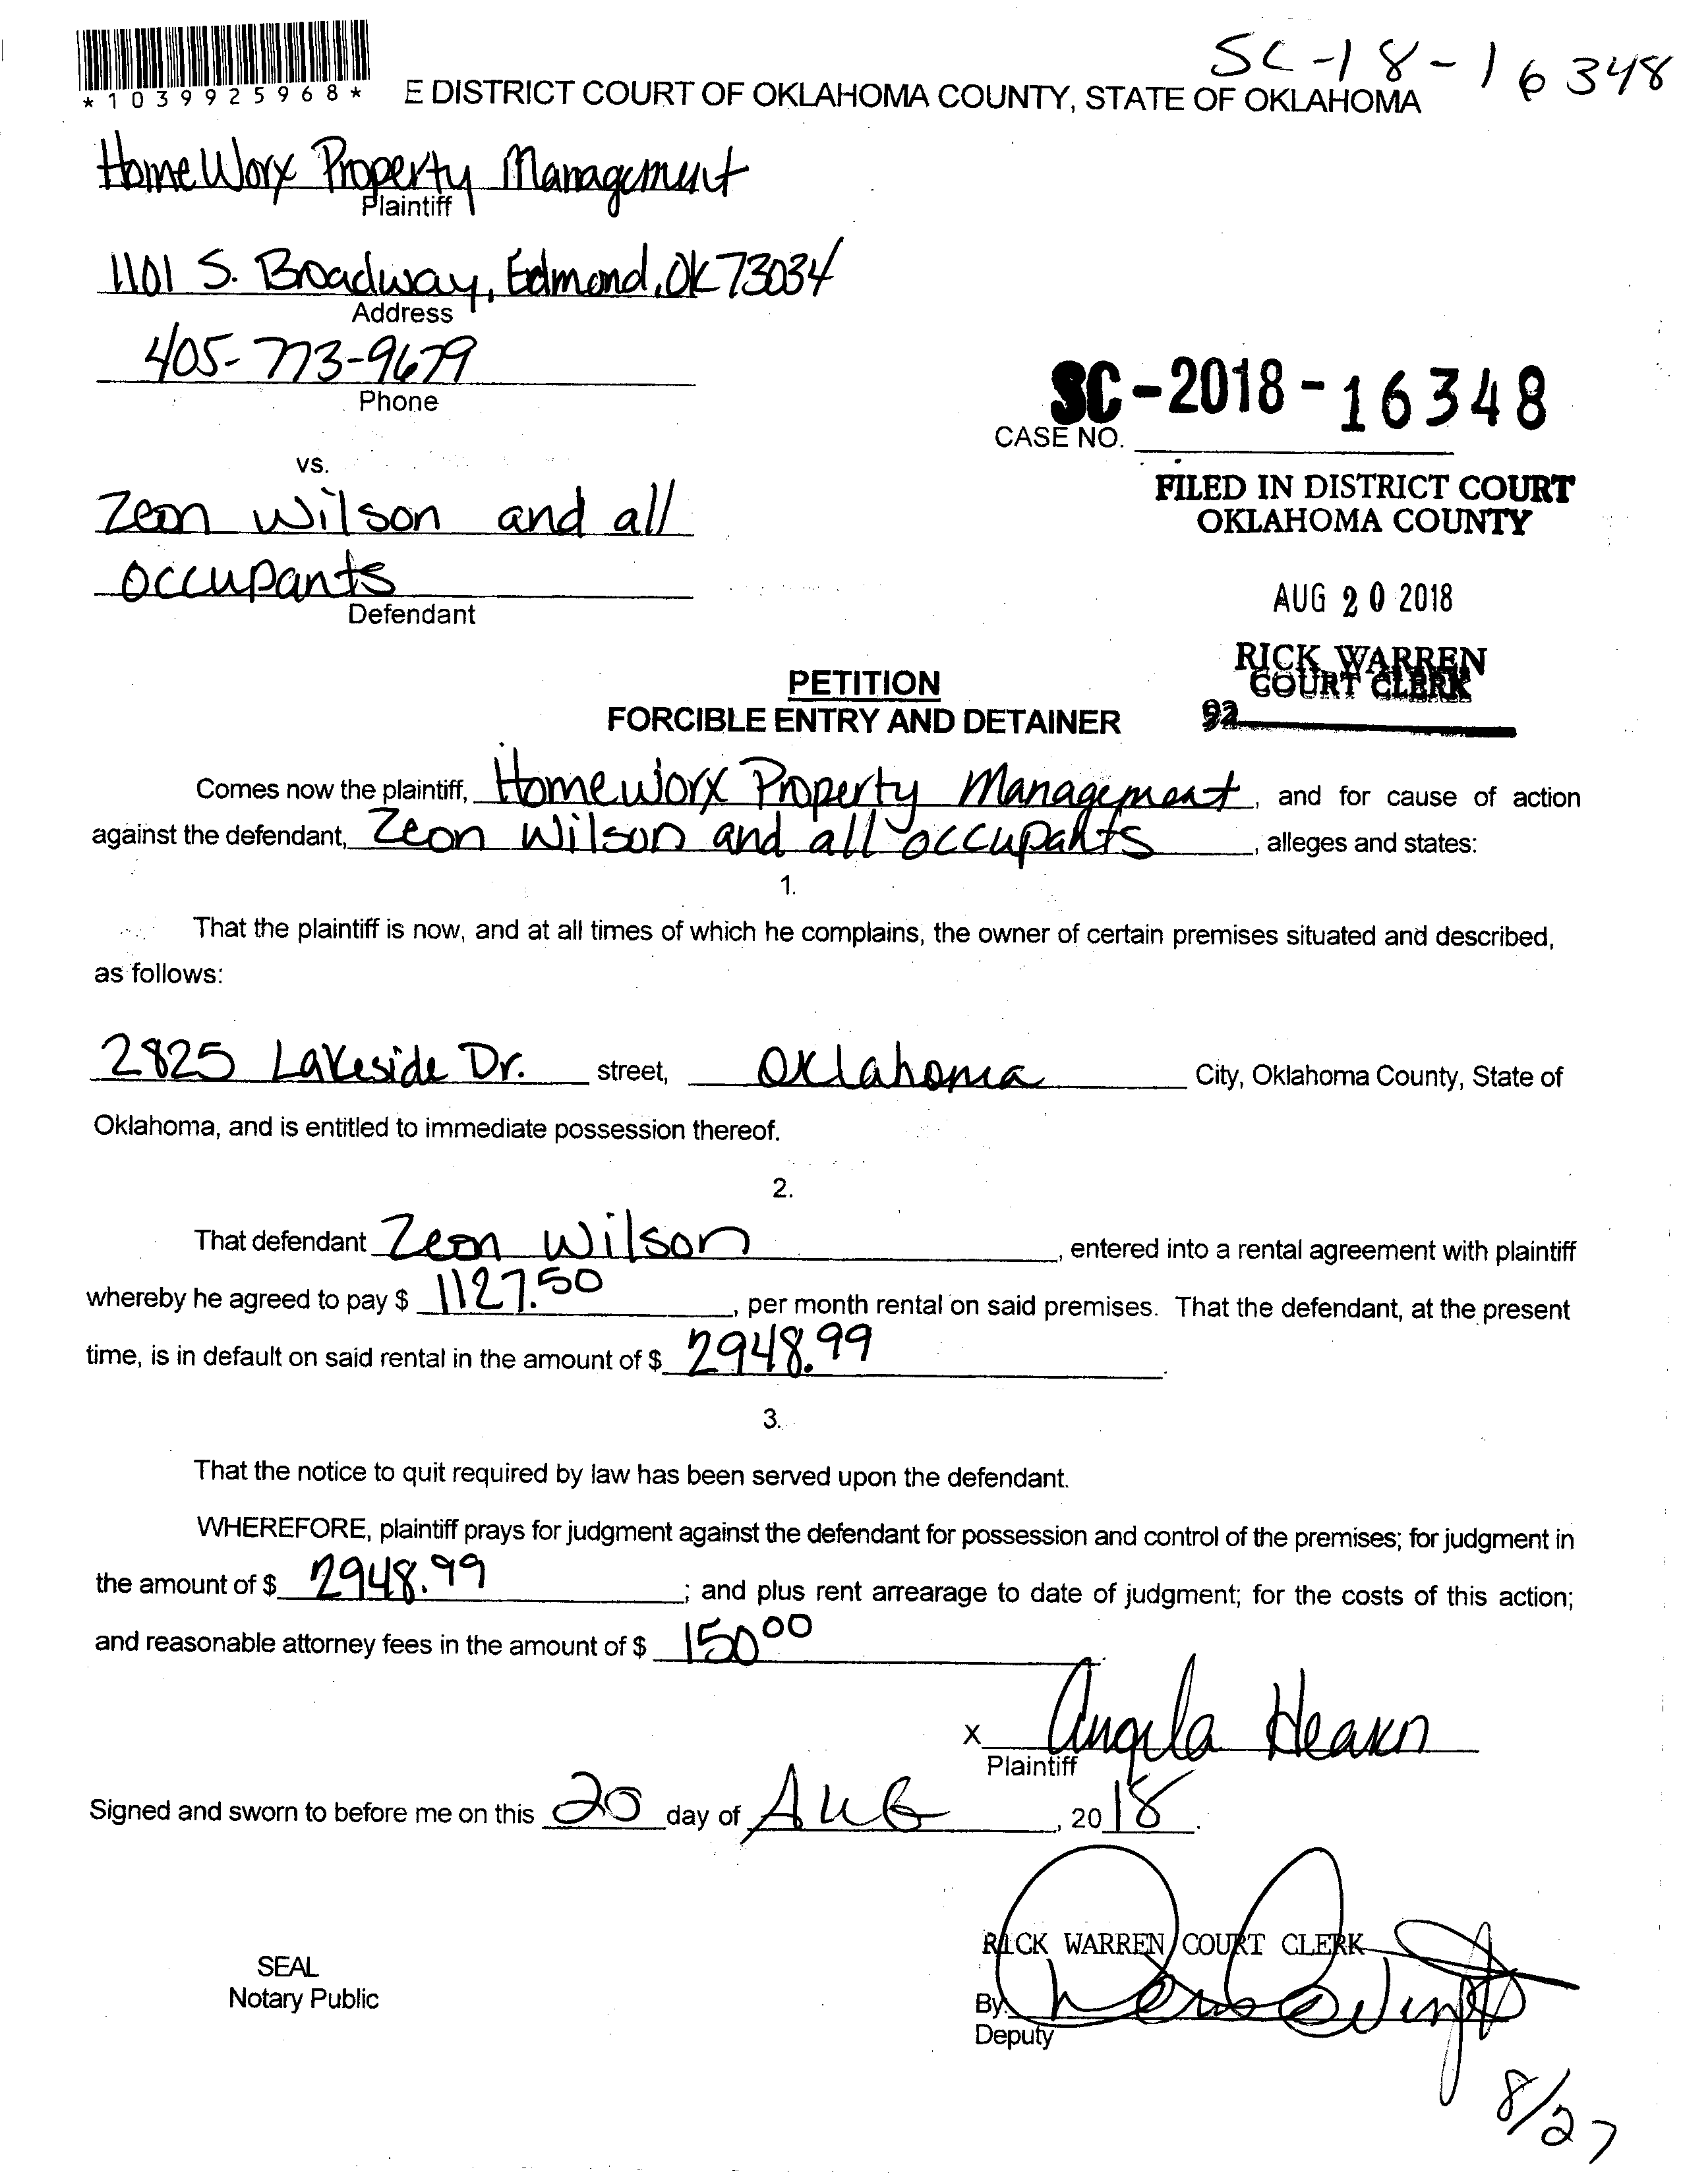 SC-18-16348
*1039925968*
E DISTRICT COURT OF OKLAHOMA COUNTY, STATE OF OKLAHOMA
HomeWorx Property Management
Plaintiff
1101 S. Broadway, Edmond, OK 73034
Address
405-773-9679
Phone
SC-2018-16348
CASE NO.
vs.
FILED IN DISTRICT COURT
OKLAHOMA COUNTY
Zeon Wilson and all
occupants
Defendant
AUG 20 2018
RICK WARREN
COURT CLERK
92
PETITION
FORCIBLE ENTRY AND DETAINER
Comes now the plaintiff, Homeworx Property Management, and for cause of action
against the defendant, Zeon Wilson and all occupants, alleges and states:
1.
That the plaintiff is now, and at all times of which he complains, the owner of certain premises situated and described,
as follows:
2825 Lakeside Dr. street, Oklahoma City, Oklahoma County, State of
Oklahoma, and is entitled to immediate possession thereof.
2.
That defendant Zeon Wilson, entered into a rental agreement with plaintiff
whereby he agreed to pay $ 1127.50, per month rental on said premises. That the defendant, at the present
time, is in default on said rental in the amount of $ 2948.99.
3.
That the notice to quit required by law has been served upon the defendant.
WHEREFORE, plaintiff prays for judgment against the defendant for possession and control of the premises; for judgment in
the amount of $ 2948.99; and plus rent arrearage to date of judgment; for the costs of this action;
and reasonable attorney fees in the amount of $ 150.00.
X Angela Hearn
Plaintiff
Signed and sworn to before me on this 20 day of AUG, 2018.
RICK WARREN COURT CLERK
SEAL
Notary Public
By:
Deputy
8/27